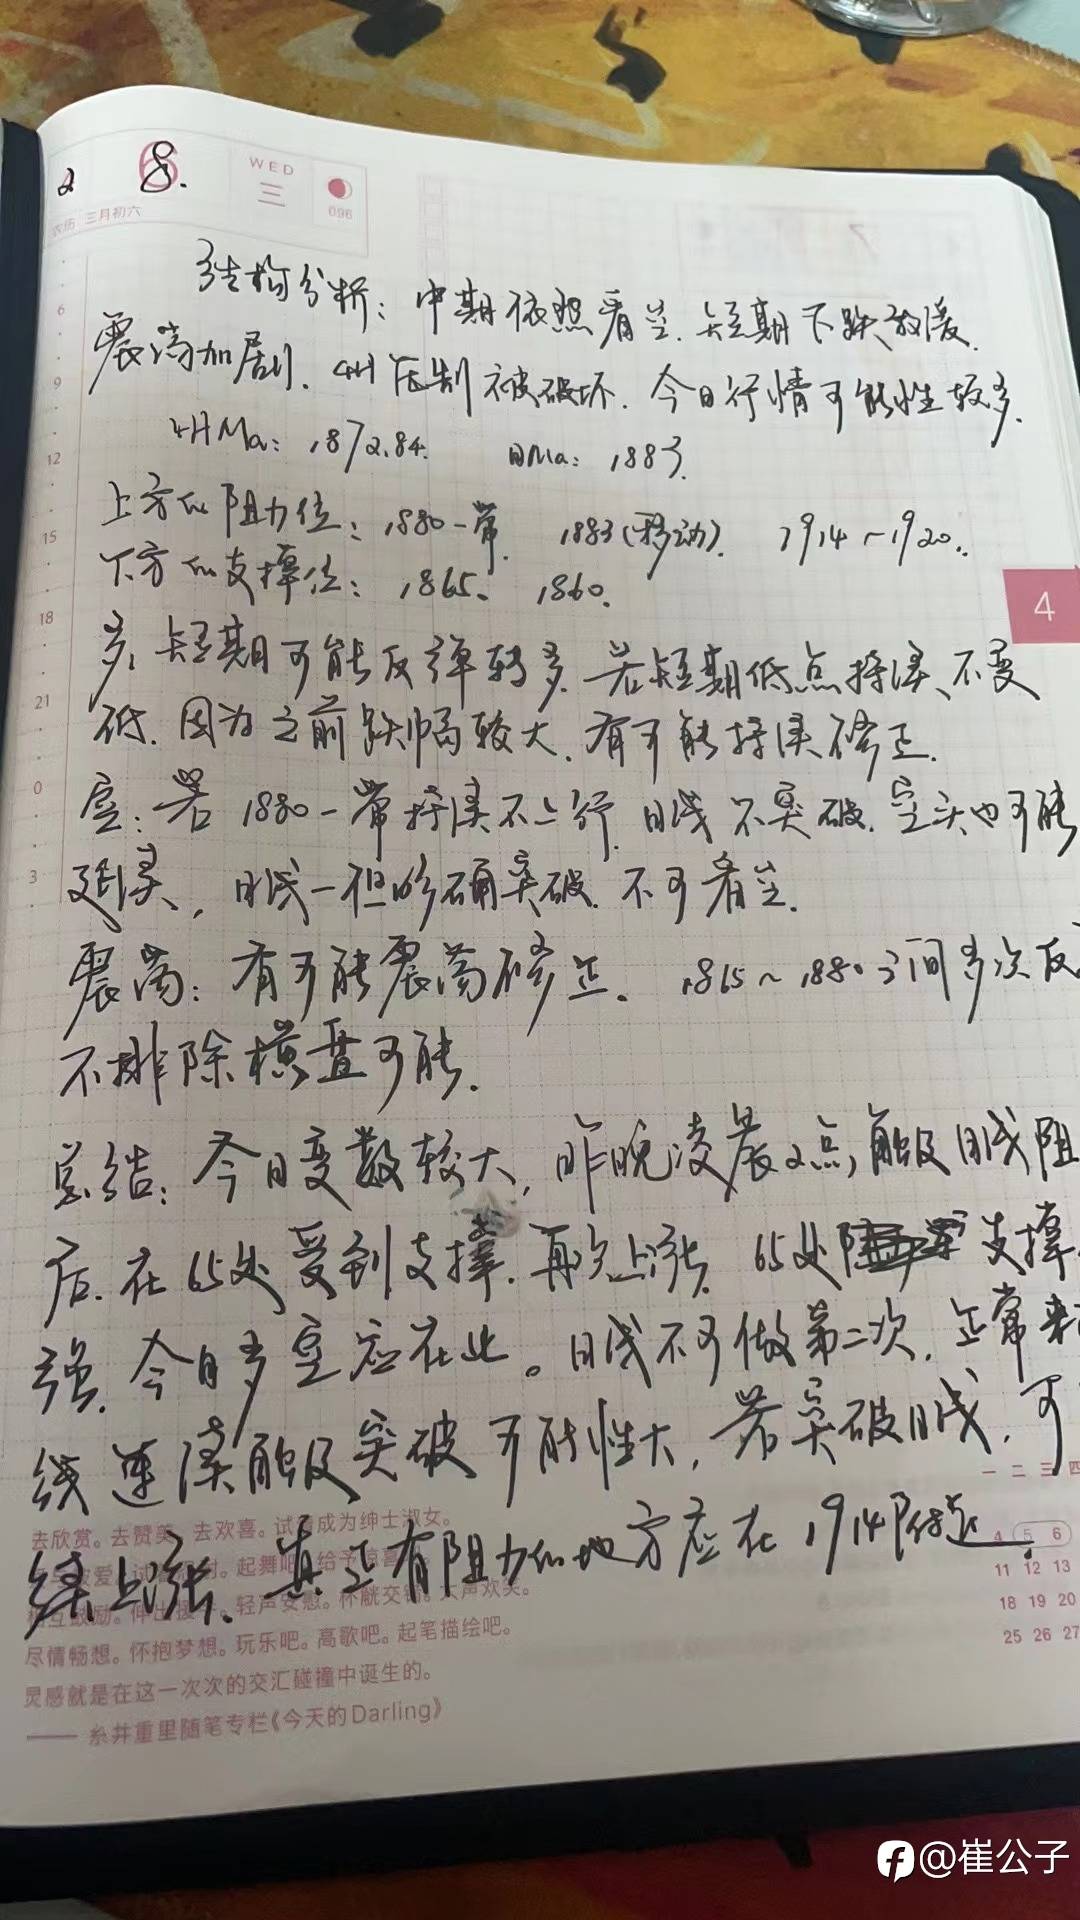 2 8.
WED
三
096
农历 三月初六
结构分析：中期依照看空．短期下跌放缓．
震荡加剧．4H压制被破坏．今日行情可能性较多．
4HMa：1872.84． 日Ma：1883．
上方的阻力位：1880一带． 1883（移动）． 1914～1920．
下方的支撑位：1865． 1860．
多：短期可能反弹转多．若短期低点持续、不变
低．因为之前跌幅较大．有可能持续修正．
空：若1880一带持续不上行．日线不突破．空头也可能
延续，日线一但明确突破．不可看空．
震荡：有可能震荡修正．1865～1880之间多次反
不排除横盘可能．
总结：今日变数较大，昨晚凌晨2点，触及日线阻
后．在65处受到支撑．再次上涨．65处支撑
强．今日多空应在此。日线不可做第二次．正常来
线连续触及突破可能性大，若突破日线，可
续上涨．真正有阻力的地方应在1914附近．
6
9
12
15
18
21
0
3
4
一 二 三 四
4 5 6
11 12 13
18 19 20
25 26 27
去欣赏。去赞美。去欢喜。试着成为绅士淑女。
尽情畅想。怀抱梦想。玩乐吧。高歌吧。起笔描绘吧。
灵感就是在这一次次的交汇碰撞中诞生的。
—— 糸井重里随笔专栏《今天的Darling》
@崔公子